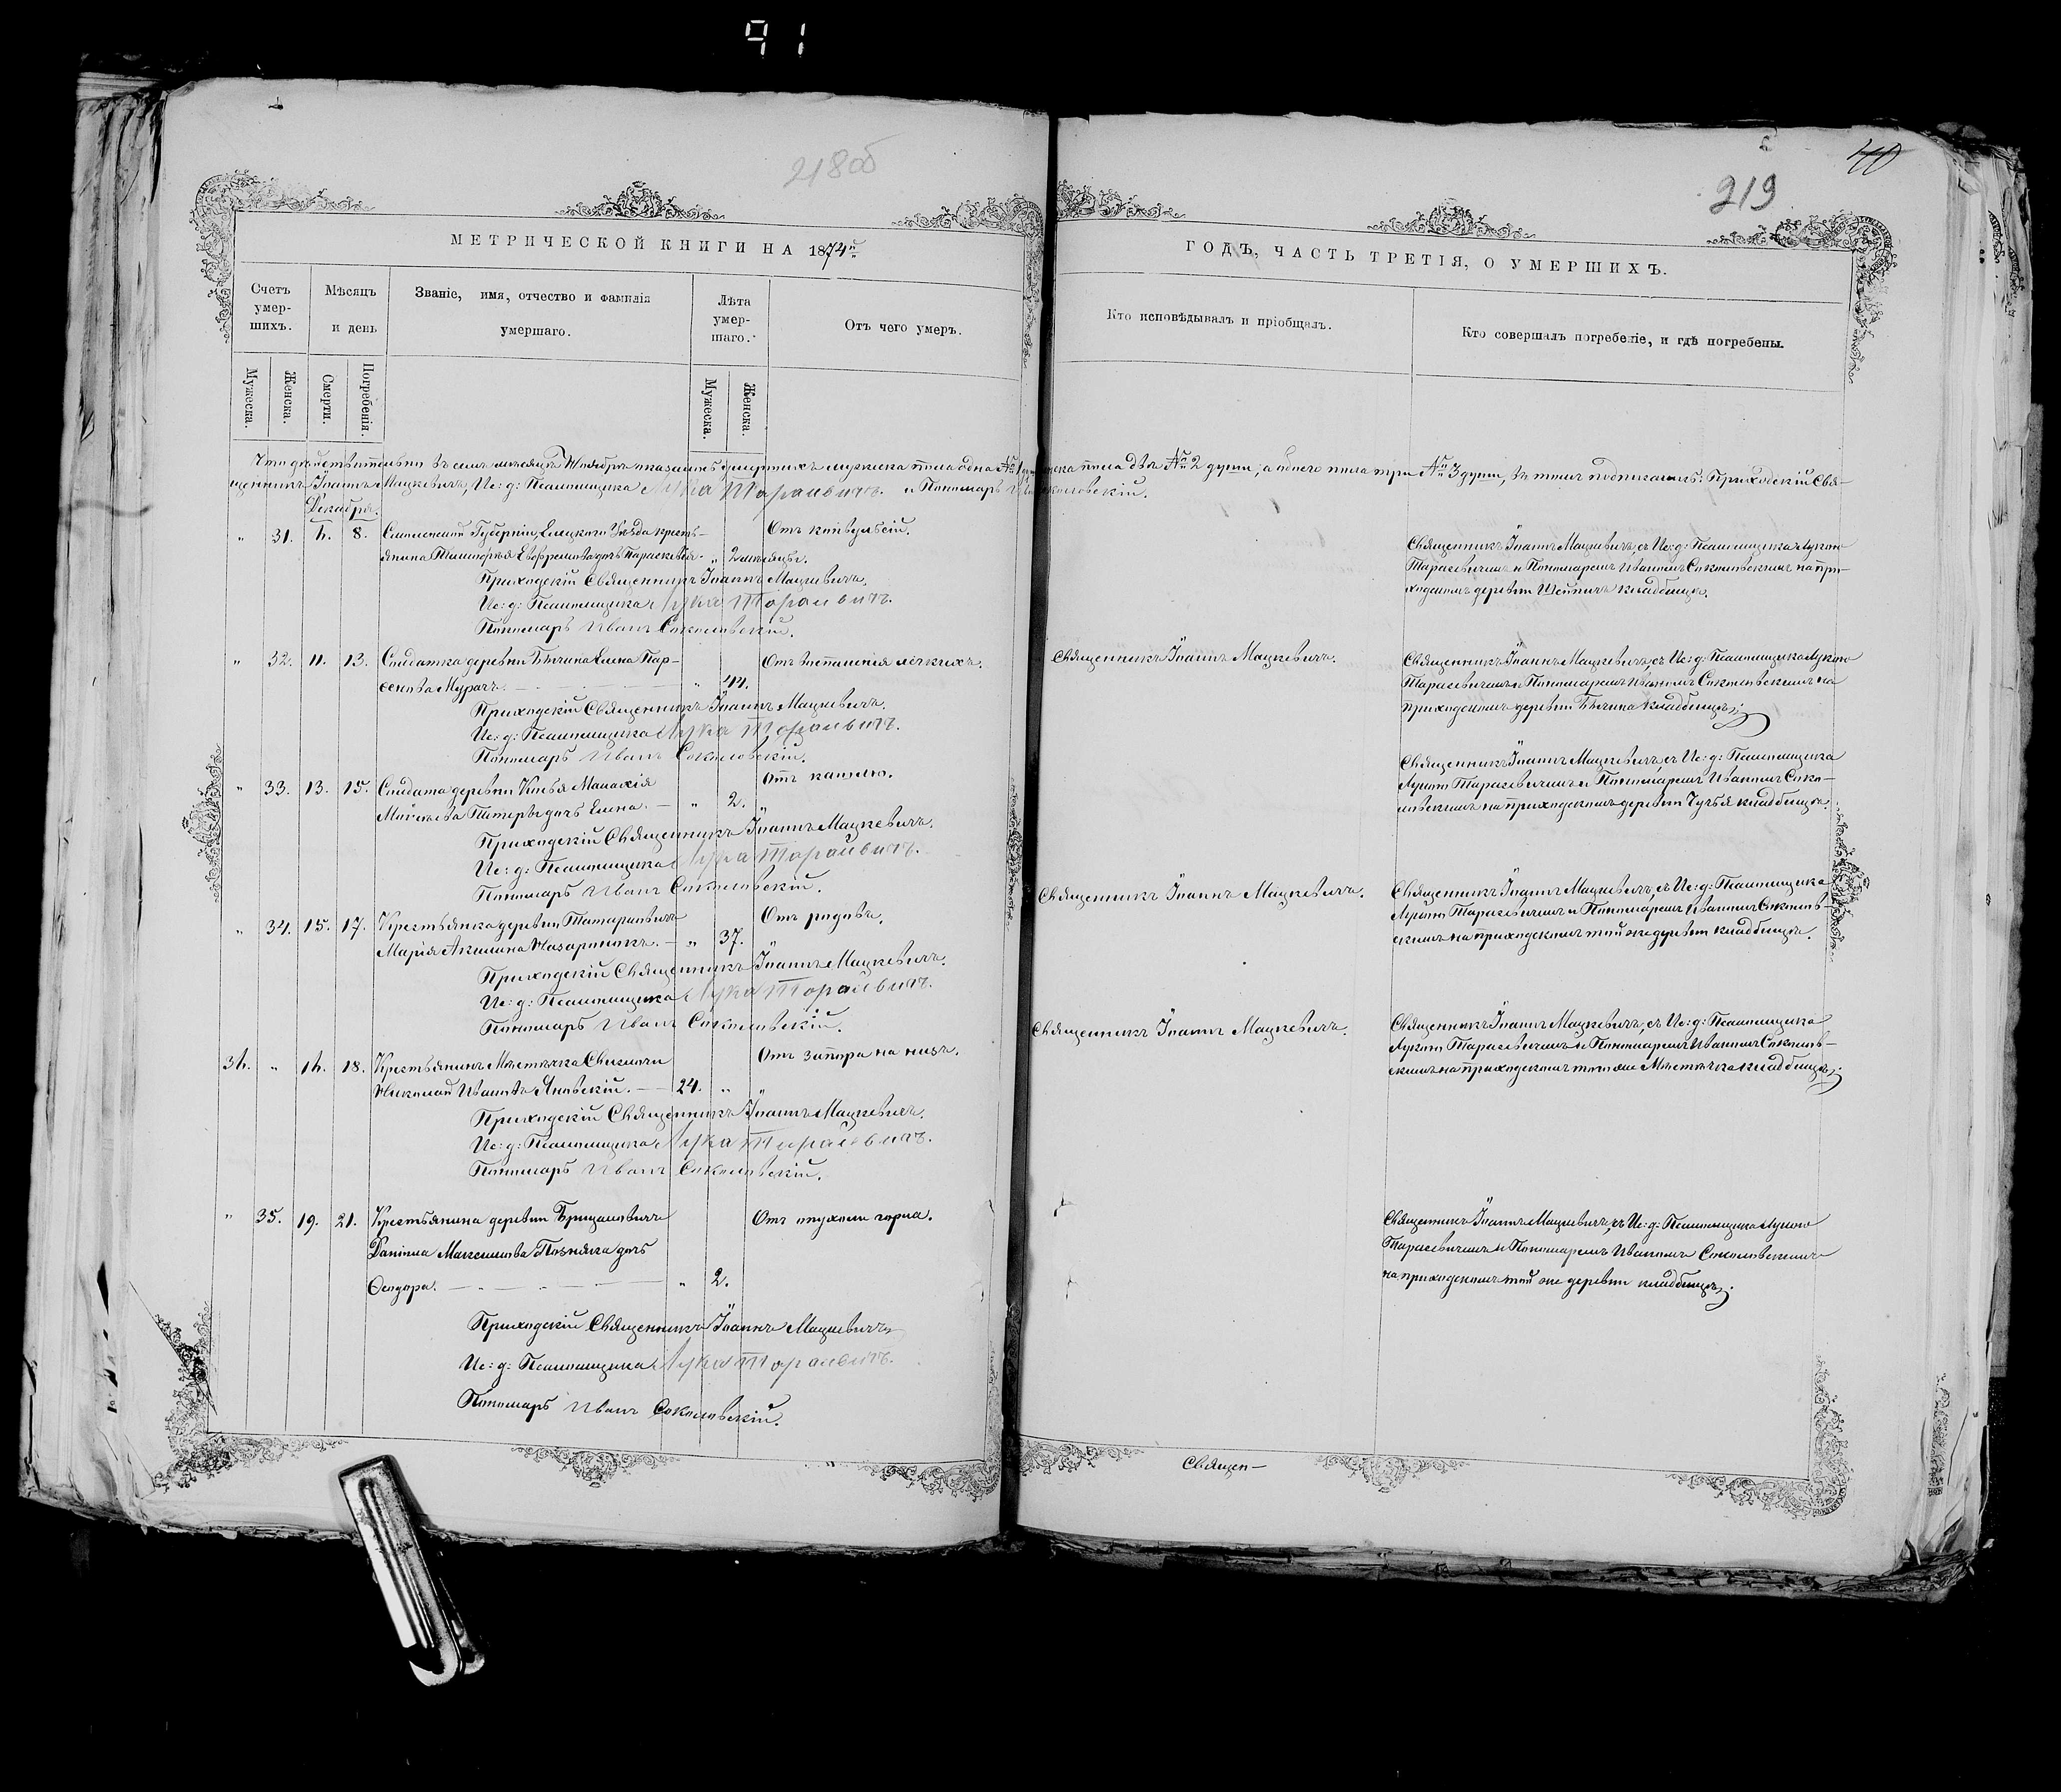 91
218об
40
219
МЕТРИЧЕСКОЙ КНИГИ НА 1874й
ГОДЪ, ЧАСТЬ ТРЕТІЯ, О УМЕРШИХЪ.
Счетъ умер-шихъ.
Мѣсяцъ и день
Званіе, имя, отчество и фамилія умершаго.
Лѣта умер-шаго.
Отъ чего умеръ.
Кто исповѣдывалъ и пріобщалъ.
Кто совершалъ погребеніе, и гдѣ погребены.
Мужеска.
Женска.
Смерти.
Погребенія.
Мужеска.
Женска.
Что дѣйствительно въ семъ мѣсяцѣ Ноябрѣ оказалось умершихъ мужеска пола одна № 1 женска пола двѣ № 2 души, а обоего пола три № 3 души, въ томъ подписались: Приходскій Свя-
щенникъ Іоаннъ Мацкевичъ, Ис: д: Псаломщика Лука Тарасевичъ. и Пономарь Иванъ Соколовскій.
Декабрь.
„ 31. 5. 8. Смоленской Губерніи Елецкаго Уѣзда кресть-
янина Тимофея Евфремова дочь Параскевія. „ 2 мѣсяцъ.
Отъ конвульсій.
Приходскій Священникъ Іоаннъ Мацкевичъ.
Ис: д: Псаломщика Лука Тарасевичъ.
Пономарь Иванъ Соколовскій.
Священникъ Іоаннъ Мацкевичъ, съ Ис: д: Псаломщика Лукою
Тарасевичемъ и Пономаремъ Иваномъ Соколовскимъ на при-
ходскомъ деревни кладбищѣ.
„ 32. 11. 13. Солдатка деревни Бѣчина Елена Пар-
фенова Мурачъ. „ 44.
Отъ воспаленія легкихъ.
Приходскій Священникъ Іоаннъ Мацкевичъ.
Ис: д: Псаломщика Лука Тарасевичъ.
Пономарь Иванъ Соколовскій.
Священникъ Іоаннъ Мацкевичъ.
Священникъ Іоаннъ Мацкевичъ, съ Ис: д: Псаломщика Лукою
Тарасевичемъ и Пономаремъ Иваномъ Соколовскимъ на
приходскомъ деревни Бѣчина кладбищѣ.
„ 33. 13. 15. Солдата деревни Манасія
дочь Елена. — „ 2. „
Отъ кашлю.
Приходскій Священникъ Іоаннъ Мацкевичъ.
Ис: д: Псаломщика Лука Тарасевичъ.
Пономарь Иванъ Соколовскій.
Священникъ Іоаннъ Мацкевичъ, съ Ис: д: Псаломщика
Лукою Тарасевичемъ и Пономаремъ Иваномъ Соко-
ловскимъ на приходскомъ деревни кладбищѣ.
„ 34. 15. 17. Крестьянка деревни Татариновичъ
Марія Акимина Назаренокъ. — „ 37. „
Отъ родовъ.
Приходскій Священникъ Іоаннъ Мацкевичъ.
Ис: д: Псаломщика Лука Тарасевичъ.
Пономарь Иванъ Соколовскій.
Священникъ Іоаннъ Мацкевичъ.
Священникъ Іоаннъ Мацкевичъ, съ Ис: д: Псаломщика
Лукою Тарасевичемъ и Пономаремъ Иваномъ Соколов-
скимъ на приходскомъ той же деревни кладбищѣ.
35. „ 15. 18. Крестьянинъ Мѣстечка
Николай Ивановъ Яновскій. — 24. „ „
Отъ запора на низъ.
Приходскій Священникъ Іоаннъ Мацкевичъ.
Ис: д: Псаломщика Лука Тарасевичъ.
Пономарь Иванъ Соколовскій.
Священникъ Іоаннъ Мацкевичъ.
Священникъ Іоаннъ Мацкевичъ, съ Ис: д: Псаломщика
Лукою Тарасевичемъ и Пономаремъ Иваномъ Соколов-
скимъ на приходскомъ того же Мѣстечка кладбищѣ.
„ 35. 19. 21. Крестьянина деревни Брицаловичъ
Даніила Максимова Позняка дочь
Ѳеодора. — „ 2.
Отъ опухоли горла.
Приходскій Священникъ Іоаннъ Мацкевичъ.
Ис: д: Псаломщика Лука Тарасевичъ.
Пономарь Иванъ Соколовскій.
Священникъ Іоаннъ Мацкевичъ, съ Ис: д: Псаломщика Лукою
Тарасевичемъ и Пономаремъ Иваномъ Соколовскимъ
на приходскомъ той же деревни кладбищѣ.
Священ-